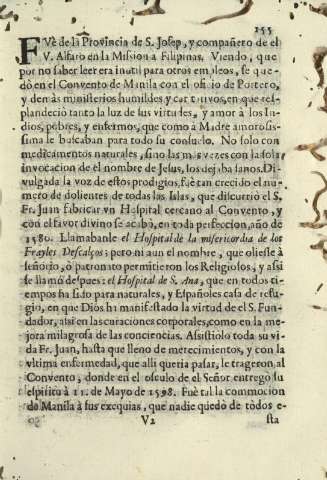 155
FVè de la Provincia de S. Josep, y compañero de el
V. Alfaro en la Mission à Filipinas. Viendo, que
por no saber leer era inutil para otros empleos, se que-
dò en el Convento de Manila con el oficio de Portero,
y demàs ministerios humildes y caritativos, en que res-
plandeciò tanto la luz de sus virtudes, y amor à los In-
dios, pobres, y enfermos, que como à Madre amorosis-
sima le buscaban para todo su consuelo. No solo con
medicamentos naturales, sino las mas vezes con la sola
invocacion de el nombre de Jesus, los dejaba sanos. Di-
vulgada la voz de estos prodigios, fuè tan crecido el nu-
mero de dolientes de todas las Islas, que discurriò el S.
Fr. Juan fabricar vn Hospital cercano al Convento, y
con el favor divino se acabò, en toda perfeccion, año de
1580. Llamabanle el Hospital de la misericordia de los
Frayles Descalços; pero ni aun el nombre, que oliesse à
señorio, ò patronato permitieron los Religiosos, y assi
se llamò despues: el Hospital de S. Ana, que en todos ti-
empos ha sido para naturales, y Españoles casa de refu-
gio, en que Dios ha manifestado la virtud de el S. Fun-
dador, assi en las curaciones corporales, como en la me-
jora milagrosa de las conciencias. Assistiolo toda su vi-
da Fr. Juan, hasta que lleno de merecimientos, y con la
vltima enfermedad, que alli queria passar, le trageron al
Convento, donde en el osculo de el Señor entregò su
espiritu à 11. de Mayo de 1598. Fuè tal la commocion
de Manila à sus exequias, que nadie quedò de tòdos e-
V2 sta